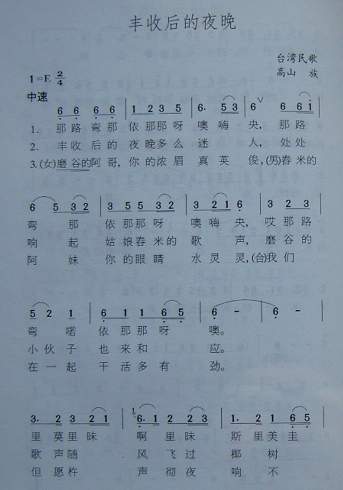 丰收后的夜晚
台湾民歌
1=E 2/4
高山 族
中速
6 6 6 6 1 2 3 5 6· 5 3 6 ∨ 6 6 1
1. 那 路 弯 那 依 那 那 呀 噢 嗨 央, 那 路
2. 丰 收 后 的 夜 晚 多 么 迷 人, 处 处
3.(女)磨 谷 的 阿 哥, 你 的 浓 眉 真 英 俊,(男)舂 米 的
6 5 3 2 1 2 3 5 6· 5 3 2 3 2 1 3 2 3
弯 那 依 那 那 呀 噢 嗨 央, 哎 那 路
响 起 姑 娘 舂 米 的 歌 声, 磨 谷 的
阿 妹 你 的 眼 睛 水 灵 灵,(合)我 们
5 2 1 6 1 1 6 5 6 – 6 –
弯 喏 依 那 那 呀 噢。
小 伙 子 也 来 和 应。
在 一 起 干 活 多 有 劲。
3· 2 3 2 1 6· 1 2 2 1 1· 2 1 6 5
里 莫 里 昧 啊 里 昧 斯 里 美 圭
歌 声 随 风 飞 过 椰 树
但 愿 杵 声 彻 夜 响 不